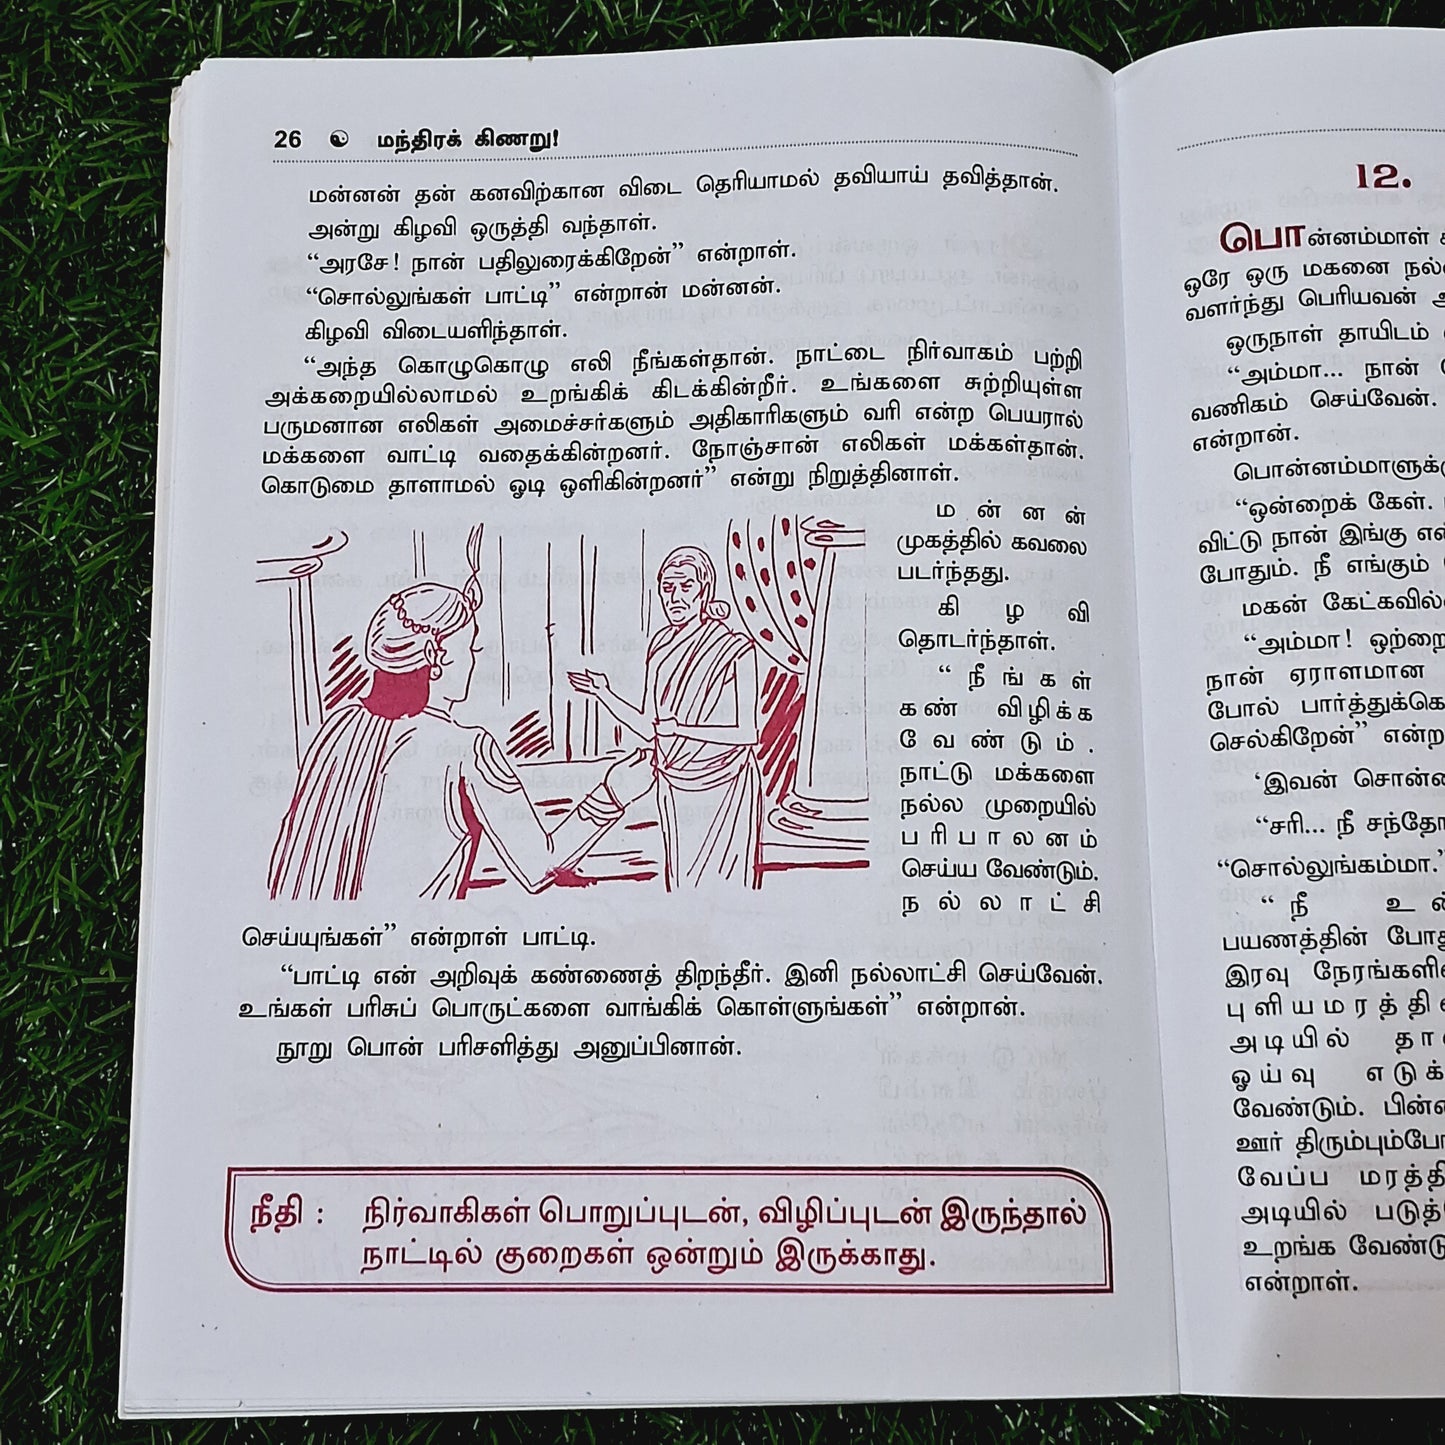 26 ☯ மந்திரக் கிணறு!
மன்னன் தன் கனவிற்கான விடை தெரியாமல் தவியாய் தவித்தான்.
அன்று கிழவி ஒருத்தி வந்தாள்.
“அரசே! நான் பதிலுரைக்கிறேன்” என்றாள்.
“சொல்லுங்கள் பாட்டி” என்றான் மன்னன்.
கிழவி விடையளிந்தாள்.
“அந்த கொழுகொழு எலி நீங்கள்தான். நாட்டை நிர்வாகம் பற்றி
அக்கறையில்லாமல் உறங்கிக் கிடக்கின்றீர். உங்களை சுற்றியுள்ள
பருமனான எலிகள் அமைச்சர்களும் அதிகாரிகளும் வரி என்ற பெயரால்
மக்களை வாட்டி வதைக்கின்றனர். நோஞ்சான் எலிகள் மக்கள்தான்.
கொடுமை தாளாமல் ஓடி ஒளிகின்றனர்” என்று நிறுத்தினாள்.
மன்னன்
முகத்தில் கவலை
படர்ந்தது.
கிழவி
தொடர்ந்தாள்.
“நீங்கள்
கண் விழிக்க
வேண்டும்.
நாட்டு மக்களை
நல்ல முறையில்
பரிபாலனம்
செய்ய வேண்டும்.
நல்லாட்சி
செய்யுங்கள்” என்றாள் பாட்டி.
“பாட்டி என் அறிவுக் கண்ணைத் திறந்தீர். இனி நல்லாட்சி செய்வேன்.
உங்கள் பரிசுப் பொருட்களை வாங்கிக் கொள்ளுங்கள்” என்றான்.
நூறு பொன் பரிசளித்து அனுப்பினான்.
நீதி : நிர்வாகிகள் பொறுப்புடன், விழிப்புடன் இருந்தால்
நாட்டில் குறைகள் ஒன்றும் இருக்காது.
12.
பொன்னம்மாள்
ஒரே ஒரு மகனை
வளர்ந்து பெரியவன்
ஒருநாள் தாயிடம்
“அம்மா... நான்
வணிகம் செய்வேன்.
என்றான்.
பொன்னம்மாளுக்கு
“ஒன்றைக் கேள்.
விட்டு நான் இங்கு
போதும். நீ எங்கும்
மகன் கேட்கவில்
“அம்மா! ஒற்றை
நான் ஏராளமான
போல் பார்த்துக்
செல்கிறேன்”
‘இவன்
“சரி... நீ
“சொல்லுங்கம்மா.”
“நீ
பயணத்தின்
இரவு நேரங்களில்
புளியமரத்தின்
அடியில்
ஓய்வு
வேண்டும்.
ஊர் திரும்பும்போ
வேப்ப மரத்தி
அடியில் படுத்
உறங்க வேண்டு
என்றாள்.